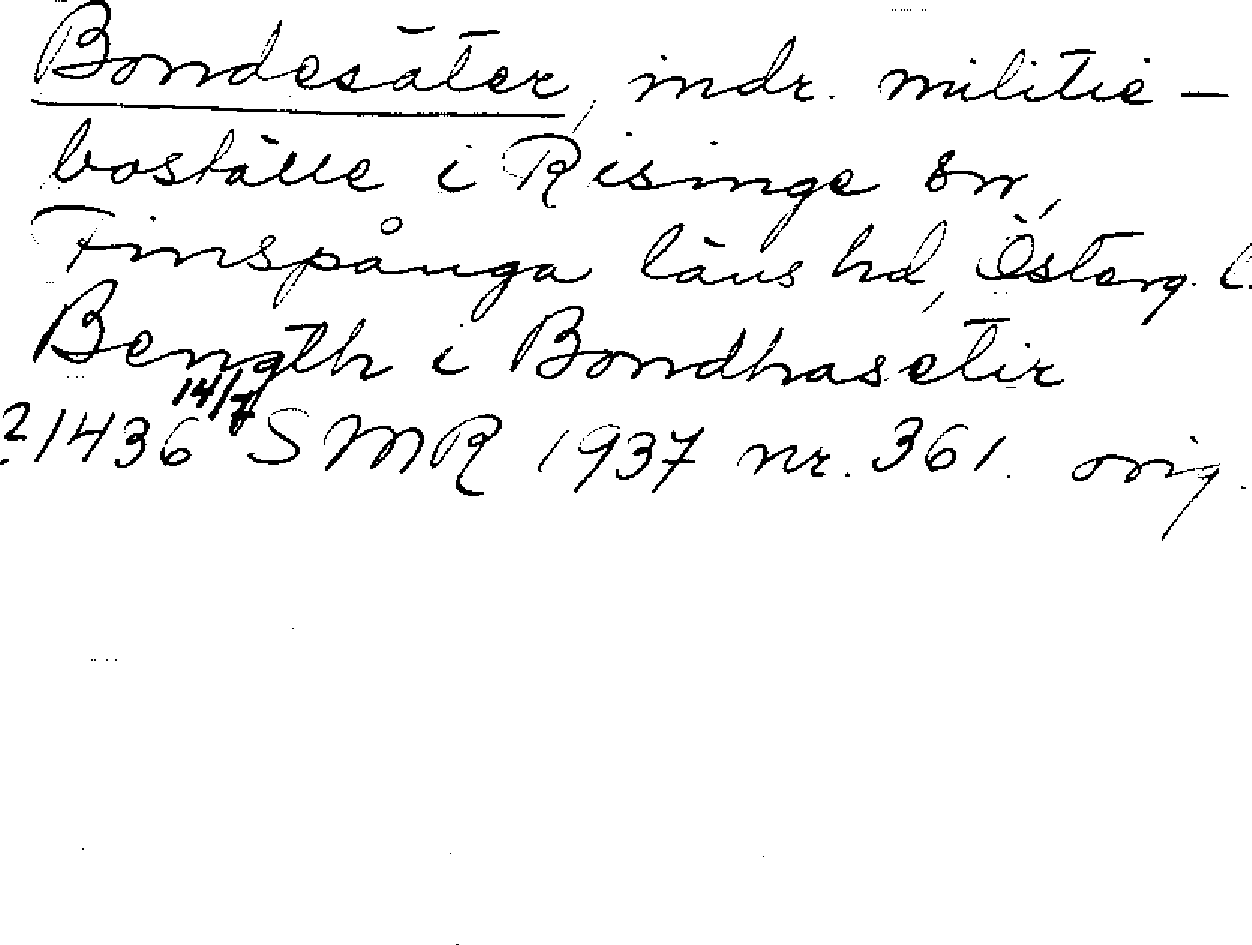 Bondesäter, indr. militie-
boställe i Risinge sn,
Finspånga läns hd, Österg. l.
Bength i Bondhasetir
?1436 14/7 SMR 1937 nr. 361. orig.